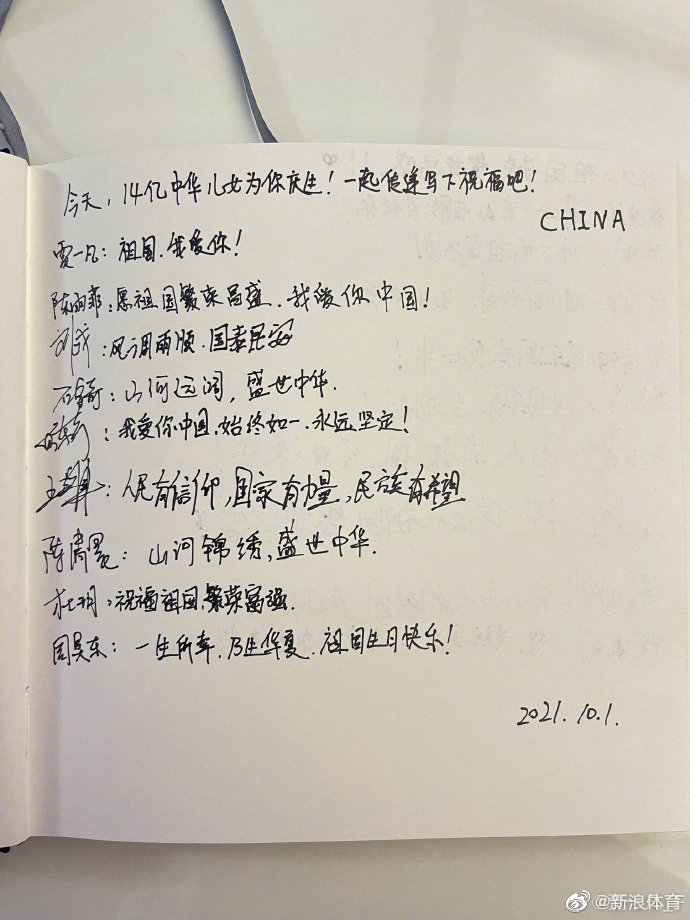 今天，14亿中华儿女为你庆生！一起传递写下祝福吧！
CHINA
贾一凡：祖国，我爱你！
陈雨菲：愿祖国繁荣昌盛，我爱你中国！
：风调雨顺，国泰民安
石宇奇：山河远阔，盛世中华.
：我爱你中国，始终如一，永远坚定！
：人民有信仰，国家有力量，民族有希望
陈清晨：山河锦绣，盛世中华.
杜玥：祝福祖国，繁荣富强.
周昊东：一生所幸，乃生华夏，祖国生日快乐！
2021.10.1.
@新浪体育